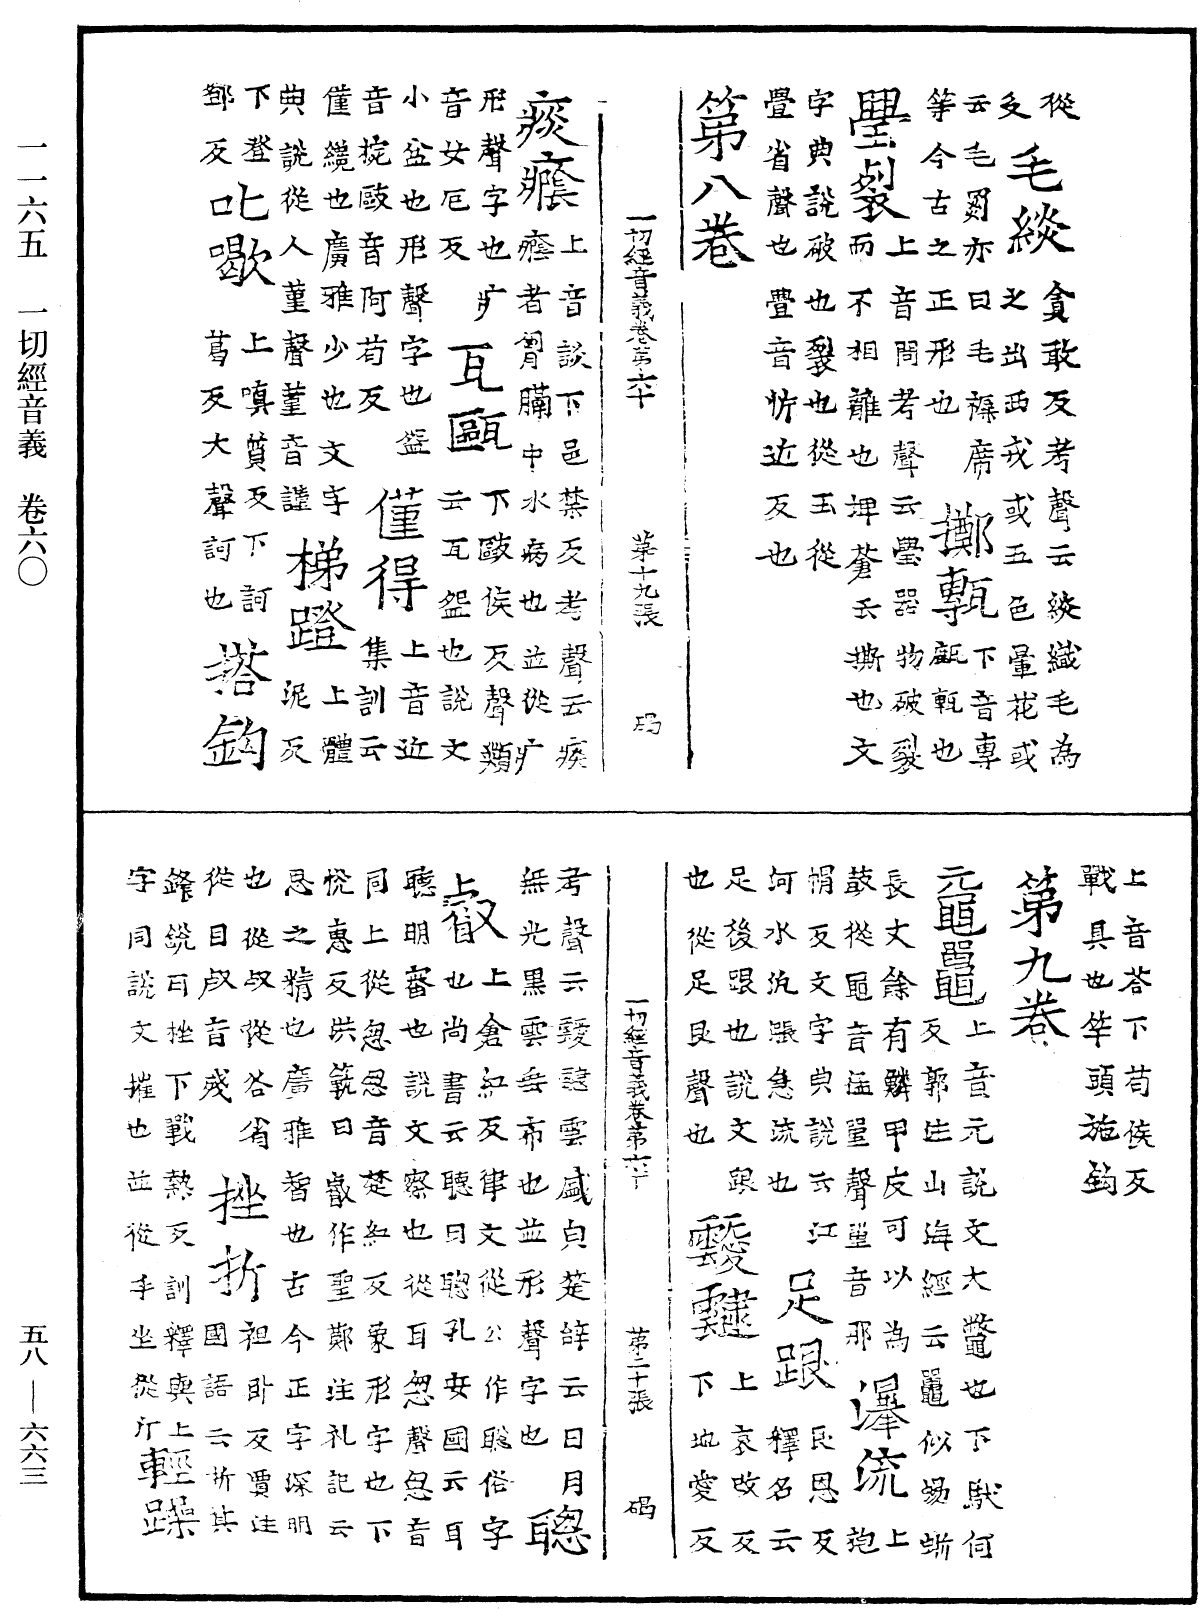 從
文
毛緂
貪敢反考聲云緂織毛為
之出西戎或五色暈花或
云毛罽亦曰毛褥席
等今古之正形也
擲甎
下音專
甒甎也
璺裂
上音問考聲云璺器物破裂
而不相離也埤蒼云撕也文
字典說破也裂也從玉從
舋省聲也舋音忻近反也
第八卷
一切經音義卷第六十　第十九張　碣
痰癊
上音談下邑禁反考聲云痰
癊者胷膈中水病也並從疒
形聲字也疒
音女厄反
瓦甌
下歐侯反聲類
云瓦盌也說文
小盆也形聲字也盌
音椀歐音阿苟反
僅得
上音近
集訓云
僅纔也廣雅少也文字
典說從人堇聲堇音謹
梯蹬
上體
泥反
下登
鄧反
叱歇
上嗔質反下訶
葛反大聲訶也
搭鉤
上音荅下苟侯反
戰具也竿頭施鉤
第九卷
黿鼉
上音元說文大鼈也下馱何
反郭注山海經云鼉似蜴蜥
長丈餘有鱗甲皮可以為
鼓從黽音猛𠾅聲𠾅音那
瀑流
上
袍
帽反文字典說云江
河水汎漲急流也
足跟
艮恩反
釋名云
足後跟也說文跟
也從足艮聲也
靉靆
上哀改反
下地愛反
考聲云靉靆雲盛皃楚辭云日月
無光黑雲垂布也並形聲字也
聰
叡
上倉紅反律文從公作聡俗字
也尚書云聽曰聰孔安國云耳
聽明審也說文察也從耳怱聲怱音
同上從怱怱音楚紅反象形字也下
悅惠反洪範曰叡作聖鄭注礼記云
思之精也廣雅智也古今正字深明
也從𣦼從谷省
從目𣦼音殘
挫折
祖卧反賈注
國語云折其
鋒銳曰挫下戰熱反訓釋與上
字同說文摧也並從手坐從斤
輕躁
一切經音義卷第六十　第二十張　碣
一一六五　一切經音義　卷六〇
五八—六六三